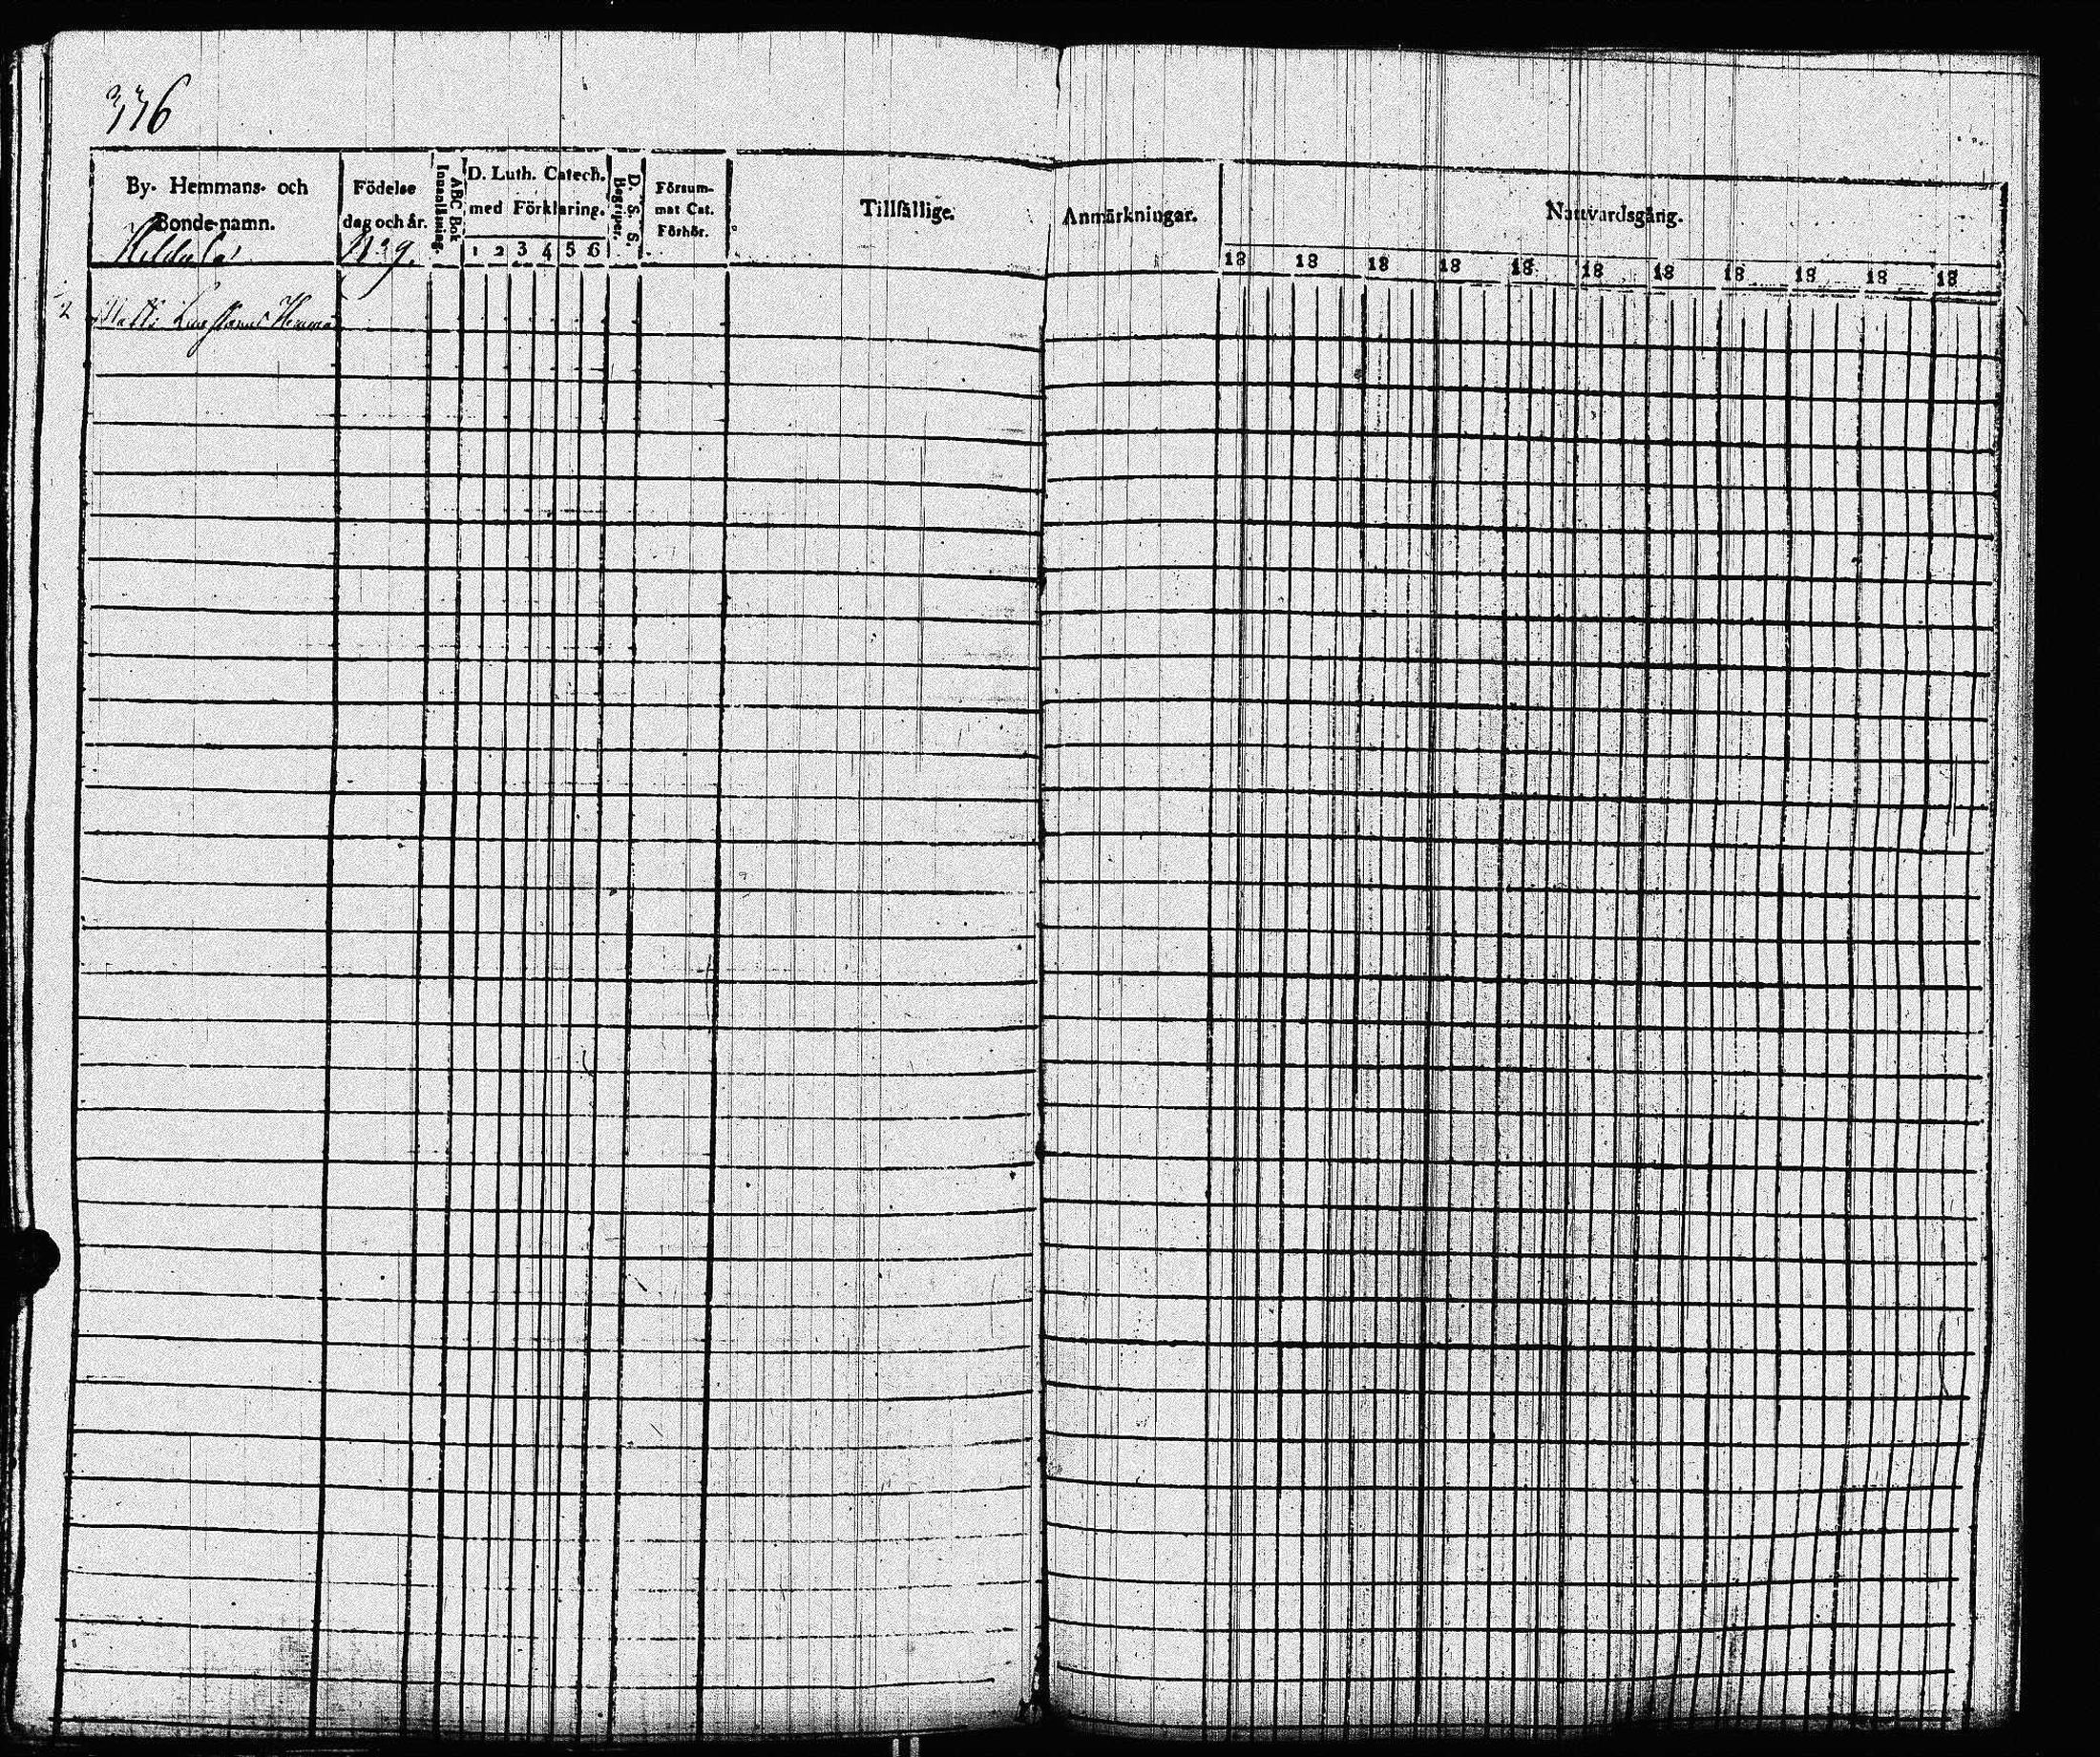 336
By- Hemmans- och
Bonde-namn.
Födelse
dag och år.
ABC Bok
Innanläsning.
D. Luth. Catech.
med Förklaring.
1 2 3 4 5 6
D. S. S.
Begriper.
Försum-
mat Cat.
Förhör.
Tillfällige.
Anmärkningar.
Nattvardsgång.
18 18 18 18 18 18 18 18 18 18 18
No 9.
2 Matts Hemma